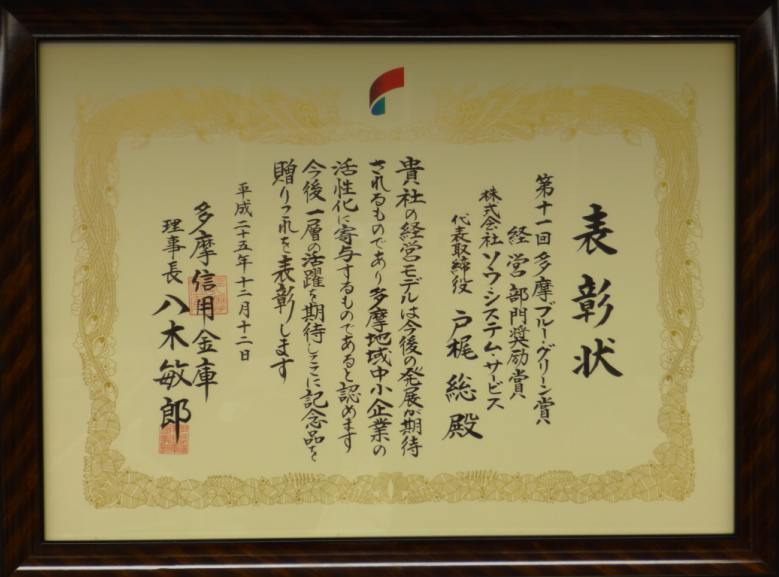 表彰状
第十一回 多摩ブルー・グリーン賞
経営部門奨励賞
株式会社 ソウ・システム・サービス
代表取締役 戸梶 総 殿
貴社の経営モデルは今後の発展が期待
されるものであり多摩地域中小企業の
活性化に寄与するものであると認めます
今後一層の活躍を期待しここに記念品を
贈りこれを表彰します
平成二十五年十二月十二日
多摩信用金庫
理事長 八木敏郎